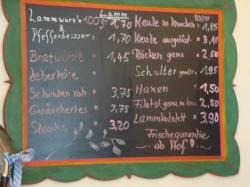 Lamm
Lammwurst &
Pfefferbeisser 100gr 1,70
" 1,70
Bratwürst " 1,45
Leberkäse "
Schinken roh " 3,75
Geräuchertes " 3,75
Steaks " 3,20
100gr
Keule m. Knochen " 1,85
Keule ausgelöst " 3,10
Rücken ganz " 2,50
Schulter " 1,95
Haxen " 1,50
Filet " 2,50
Lammkotelett " 3,90
Frischegarantie
ab Hof